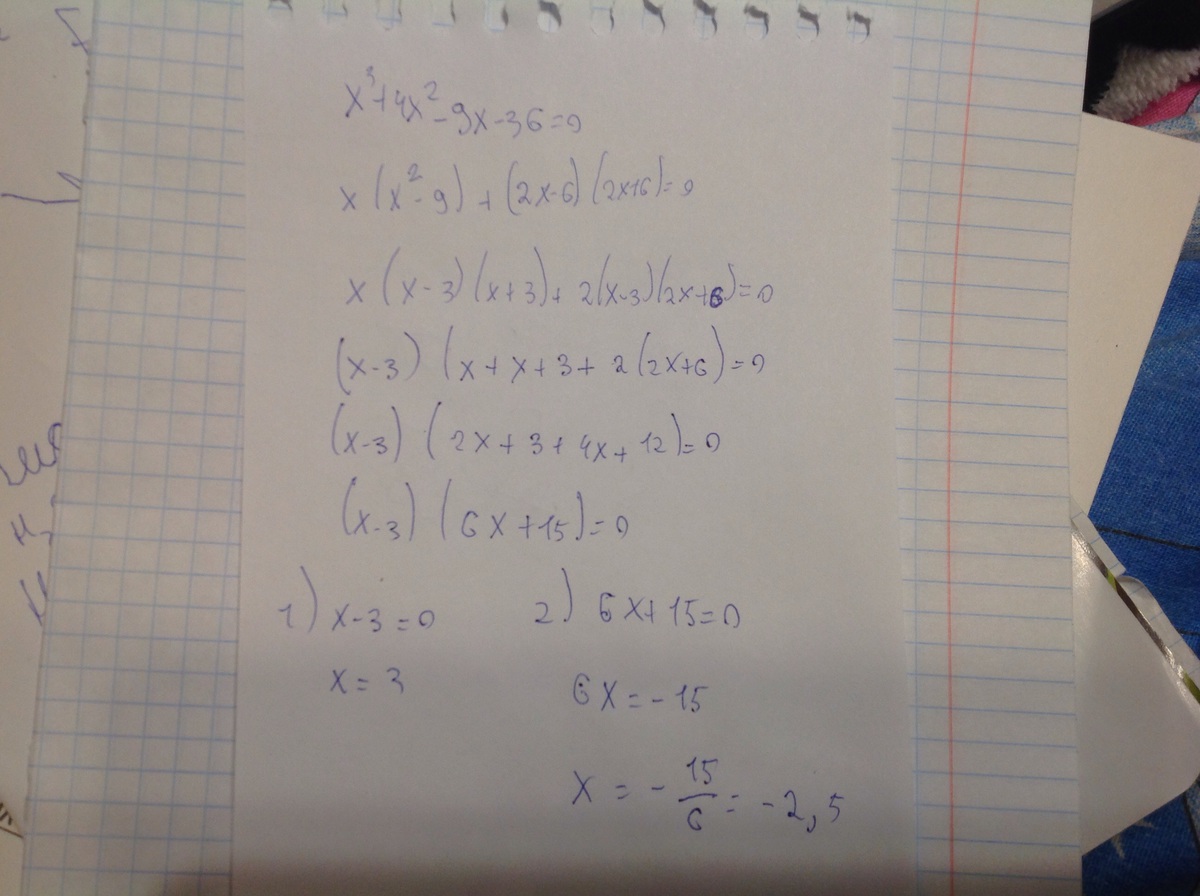 x³+4x²-9x-36=0
x(x²-9)+(2x-6)(2x+6)=0
x(x-3)(x+3)+2(x-3)(2x+6)=0
(x-3)(x+x+3+2(2x+6)=0
(x-3)(2x+3+4x+12)=0
(x-3)(6x+15)=0
1) x-3=0 2) 6x+15=0
x=3 6x=-15
x=-15/6=-2,5